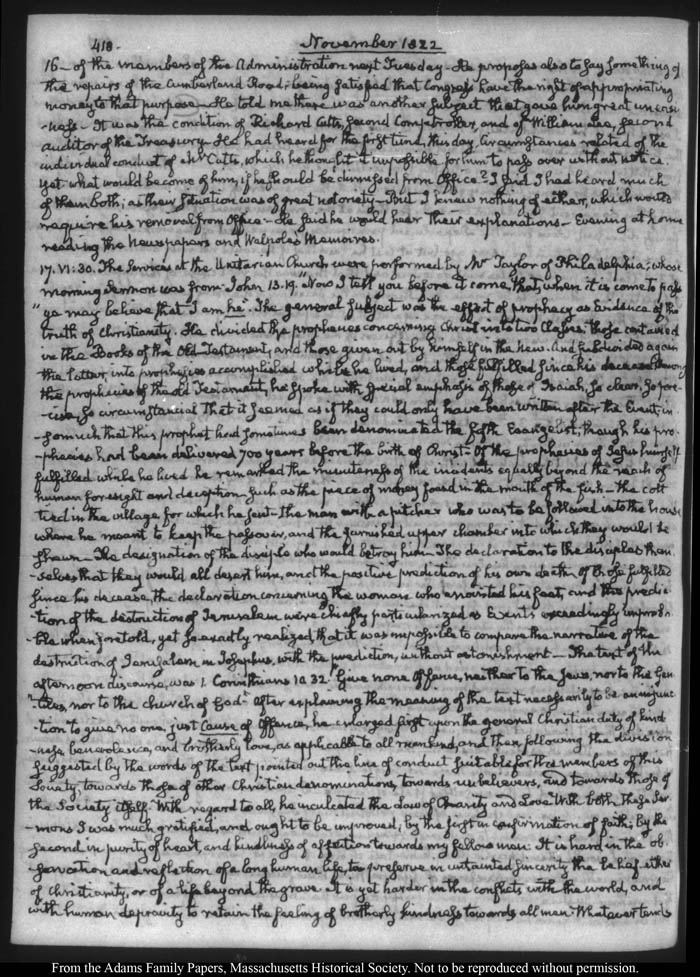 418.
November 1822
16 - of the members of the Administration next Tuesday - He proposes also to say something of
the repairs of the Cumberland Road; being satisfied that Congress have the right of appropriating
money to that purpose - He told me there was another subject that gave him great uneasi-
-ness - It was the condition of Richard Cutts, second Comptroller, and of William Lee, second
auditor of the Treasury - He had heard for the first time, this day, circumstances related of the
individual conduct of Mr Cutts, which he thought it impossible for him to pass over without notice.
yet what would become of him, if he should be dismissed from Office? I said I had heard much
of them both; as their situation was of great notoriety - But I knew nothing of either, which would
require his removal from Office - He said he would hear their explanations - Evening at home
reading the Newspapers and Walpole's Memoires.
17. VI:30. The Services at the Unitarian Church were performed by Mr Taylor of Philadelphia; whose
morning Sermon was from John 13.19. "Now I tell you before it come, that, when it is come to pass
"ye may believe that I am he". The general subject was the effect of prophecy as Evidence of the
truth of Christianity. He divided the prophecies concerning Christ into two Classes: those contained
in the Books of the Old Testament, and those given out by himself in the New. And he divided again
the latter, into prophecies accomplished while he lived, and those fulfilled since his decease. Among
the prophecies of the old Testament, he spoke with special emphasis of those of Isaiah, so clear, so pre-
-cise, so circumstancial that it seemed as if they could only have been written after the Event, in-
-somuch that this prophet had sometimes been denominated the fifth Evangelist, though his pro-
-phecies had been delivered 700 years before the birth of Christ - Of the prophecies of Jesus himself
fulfilled while he lived he remarked the minuteness of the incidents equally beyond the reach of
human foresight and deception - Such as the piece of money found in the mouth of the fish - the colt
tied in the village, for which he sent - the man with a pitcher who was to be followed into the house
where he meant to keep the passover, and the furnished upper chamber into which they would be
shewn - The designation of the disciple who would betray him - The declaration to the disciples them-
-selves that they would all desert him, and the positive prediction of his own death. Of those fulfilled
since his decease, the declaration concerning the woman who anointed his feet, and the predic-
-tion of the destruction of Jerusalem were chiefly particularized as Events exceedingly improba-
-ble when foretold, yet so exactly realized, that it was impossible to compare the narrative of the
destruction of Jerusalem in Josephus, with the prediction, without astonishment - The text of the
afternoon discourse, was 1. Corinthians 10.32. "Give none offence, neither to the Jews, nor to the Gen
"tiles, nor to the church of God" After explaining the meaning of the text necessarily to be an injunc-
-tion to give no one, just Cause of Offence, he enlarged first upon the general Christian duty of kind
-ness, benevolence, and brotherly love, as applicable to all mankind, and then following the division
suggested by the words of the text pointed out the line of conduct suitable for the members of this
Society, towards those of other Christian denominations, towards unbelievers, and towards those of
the Society itself. With regard to all, he inculcated the Law of Charity and Love. With both these Ser
-mons I was much gratified, and ought to be improved; by the first in confirmation of faith; by the
second in purity of heart, and kindness of affection towards my fellow men. It is hard in the ob-
-servation and reflection of a long human life, to preserve in untainted sincerity the belief either
of Christianity, or of a life beyond the grave - It is yet harder in the conflicts with the world, and
with human depravity to retain the feeling of brotherly kindness towards all men. Whatever tends
From the Adams Family Papers, Massachusetts Historical Society. Not to be reproduced without permission.